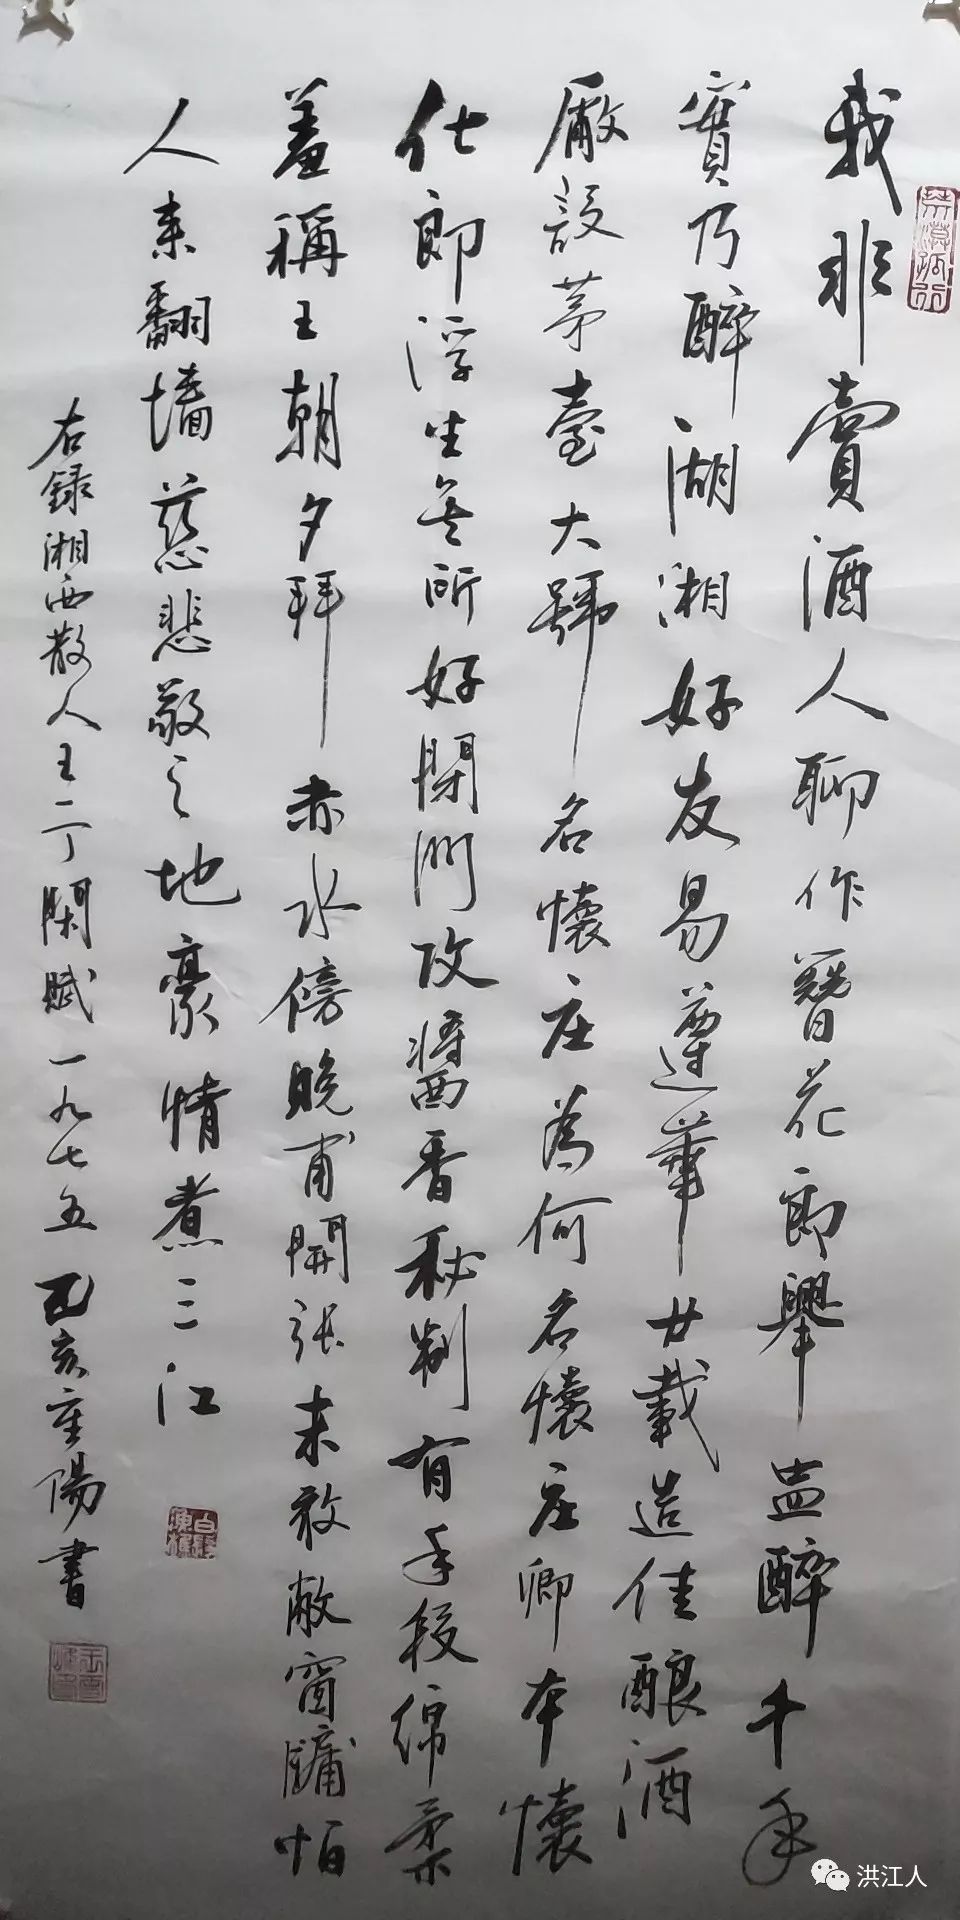 我非賣酒人聊作簪花郎舉盅醉千年
實乃醉湖湘好友易遵華廿載造佳釀酒
廠設茅臺大號名懷庄為何名懷庄卿本懷
仕郎浮生無所好閉門攻醬香秘制有手段綿柔
羞稱王朝夕拜赤水傍晚甫開張未敢敞窗牖怕
人来翻墻慈悲敬之地豪情煮三江
右録湘西散人王二丁閑賦一九七五己亥重陽書
洪江人